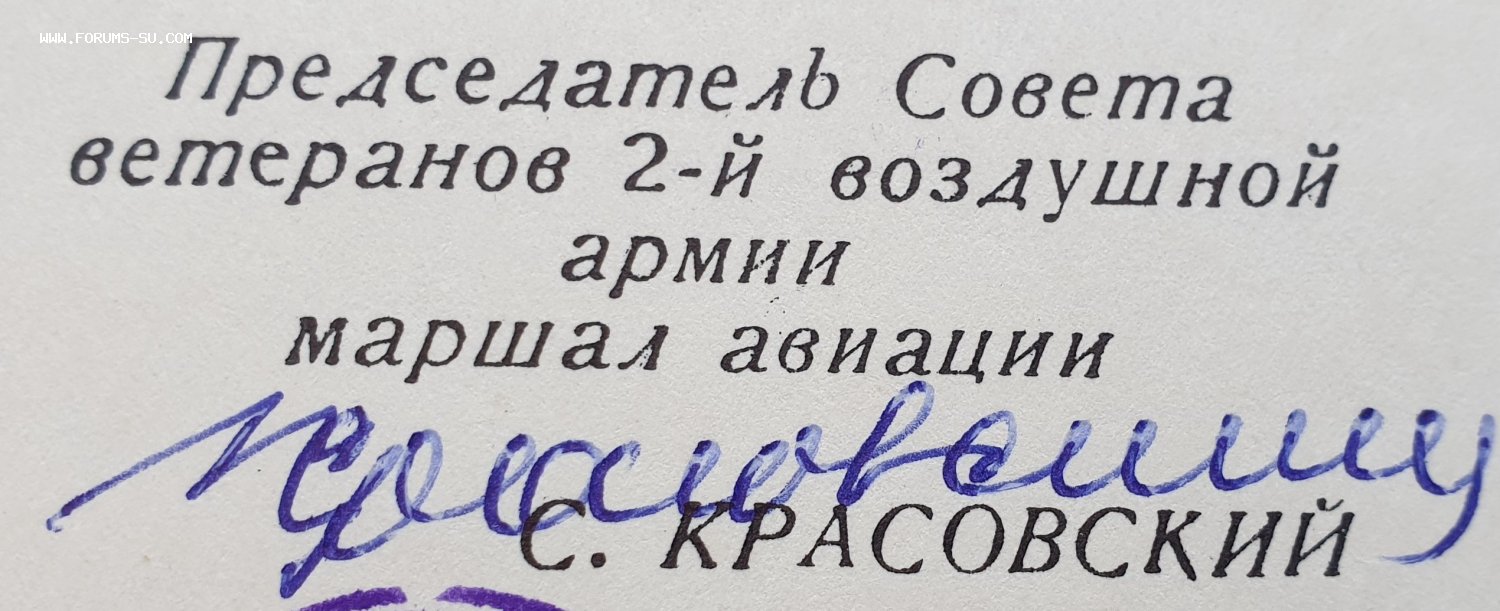 WWW.FORUMS-SU.COM
Председатель Совета
ветеранов 2-й воздушной
армии
маршал авиации
С. КРАСОВСКИЙ